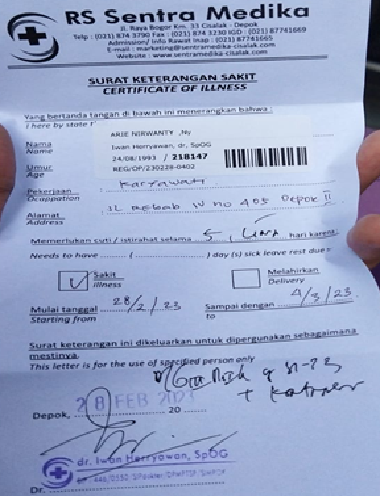 RS Sentra Medika
Jl. Raya Bogor Km. 33 Cisalak - Depok
Telp : (021) 874 3790 Fax : (021) 874 3230 IGD : (021) 87761669
Admission/ Info Rawat Inap : (021) 87761665
E-mail : marketing@sentramedika-cisalak.com
Website : www.sentramedika-cisalak.com
SURAT KETERANGAN SAKIT
CERTIFICATE OF ILLNESS
Yang bertanda tangan di bawah ini menerangkan bahwa :
I here by state
ARIE NIRWANTY ,Ny
Nama
Name
Iwan Herryawan, dr, SpOG
24/08/1993 / 218147
Umur
Age
REG/OP/230228-0402
Pekerjaan
Occappation
Karyawati
Alamat
Address
JL no 485 Depok II
Memerlukan cuti / istirahat selama 5 (Lima) hari karena:
Needs to have (.....) day (s) sick leave rest due:
Sakit
Illness
Melahirkan
Delivery
Mulai tanggal 28/2/23 Sampai dengan 4/3/23
Starting from to
Surat keterangan ini dikeluarkan untuk dipergunakan sebagaimana
mestinya.
This letter is for the use of specified person only
Depok, 28 FEB 2023 20
dr. Iwan Herryawan, SpOG
Dr.